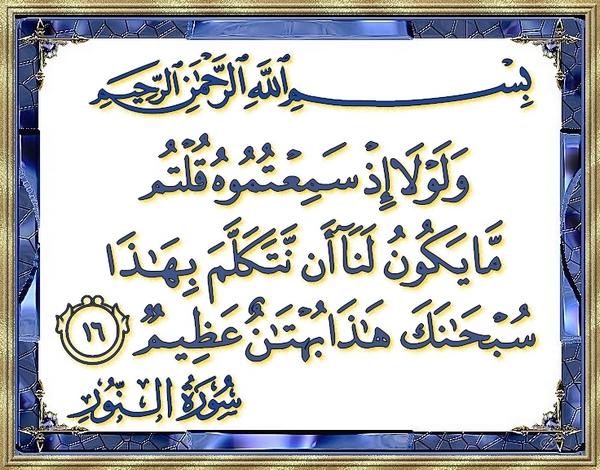 بِسْمِ ٱللَّهِ ٱلرَّحْمَٰنِ ٱلرَّحِيمِ
وَلَوْلَآ إِذْ سَمِعْتُمُوهُ قُلْتُم
مَّا يَكُونُ لَنَآ أَن نَّتَكَلَّمَ بِهَٰذَا
سُبْحَٰنَكَ هَٰذَا بُهْتَٰنٌ عَظِيمٌ ١٦
سُورَةُ النُّورِ